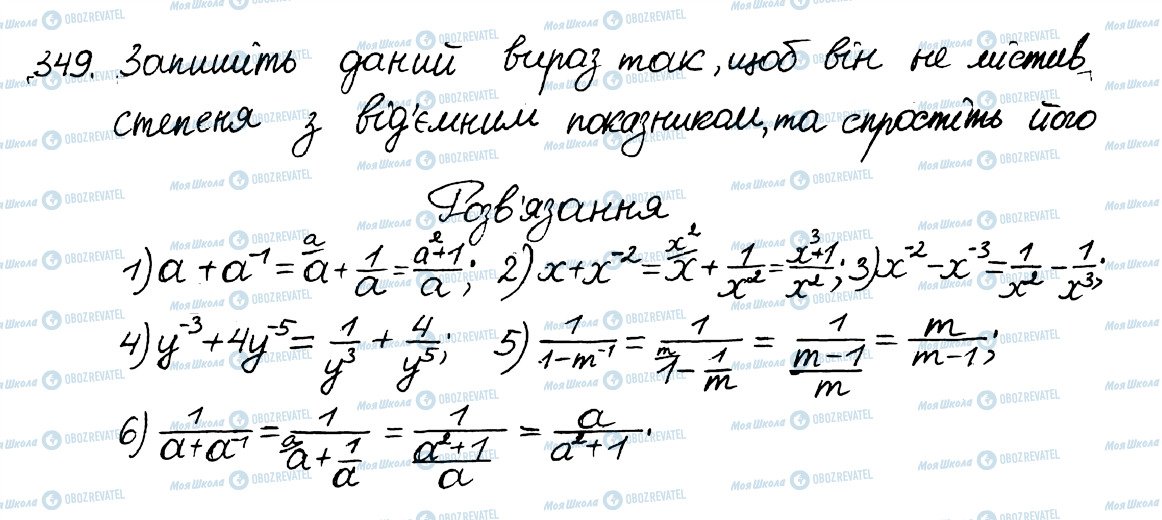 349. Запишіть даний вираз так, щоб він не містив
степеня з від'ємним показником, та спростіть його
Розв'язання
1) a + a⁻¹ = a^(a + 1/a = (a²+1)/a; 2) x + x⁻² = x^(x² + 1/x² = (x³+1)/x²; 3) x⁻² − x⁻³ = 1/x² − 1/x³;
4) y⁻³ + 4y⁻⁵ = 1/y³ + 4/y⁵; 5) 1/(1−m⁻¹) = 1/(ᵐ⁄1 − 1/m) = 1/((m−1)/m) = m/(m−1);
6) 1/(a+a⁻¹) = 1/(ᵃ⁄a + 1/a) = 1/((a²+1)/a) = a/(a²+1).
МояШкола OBOZREVATEL